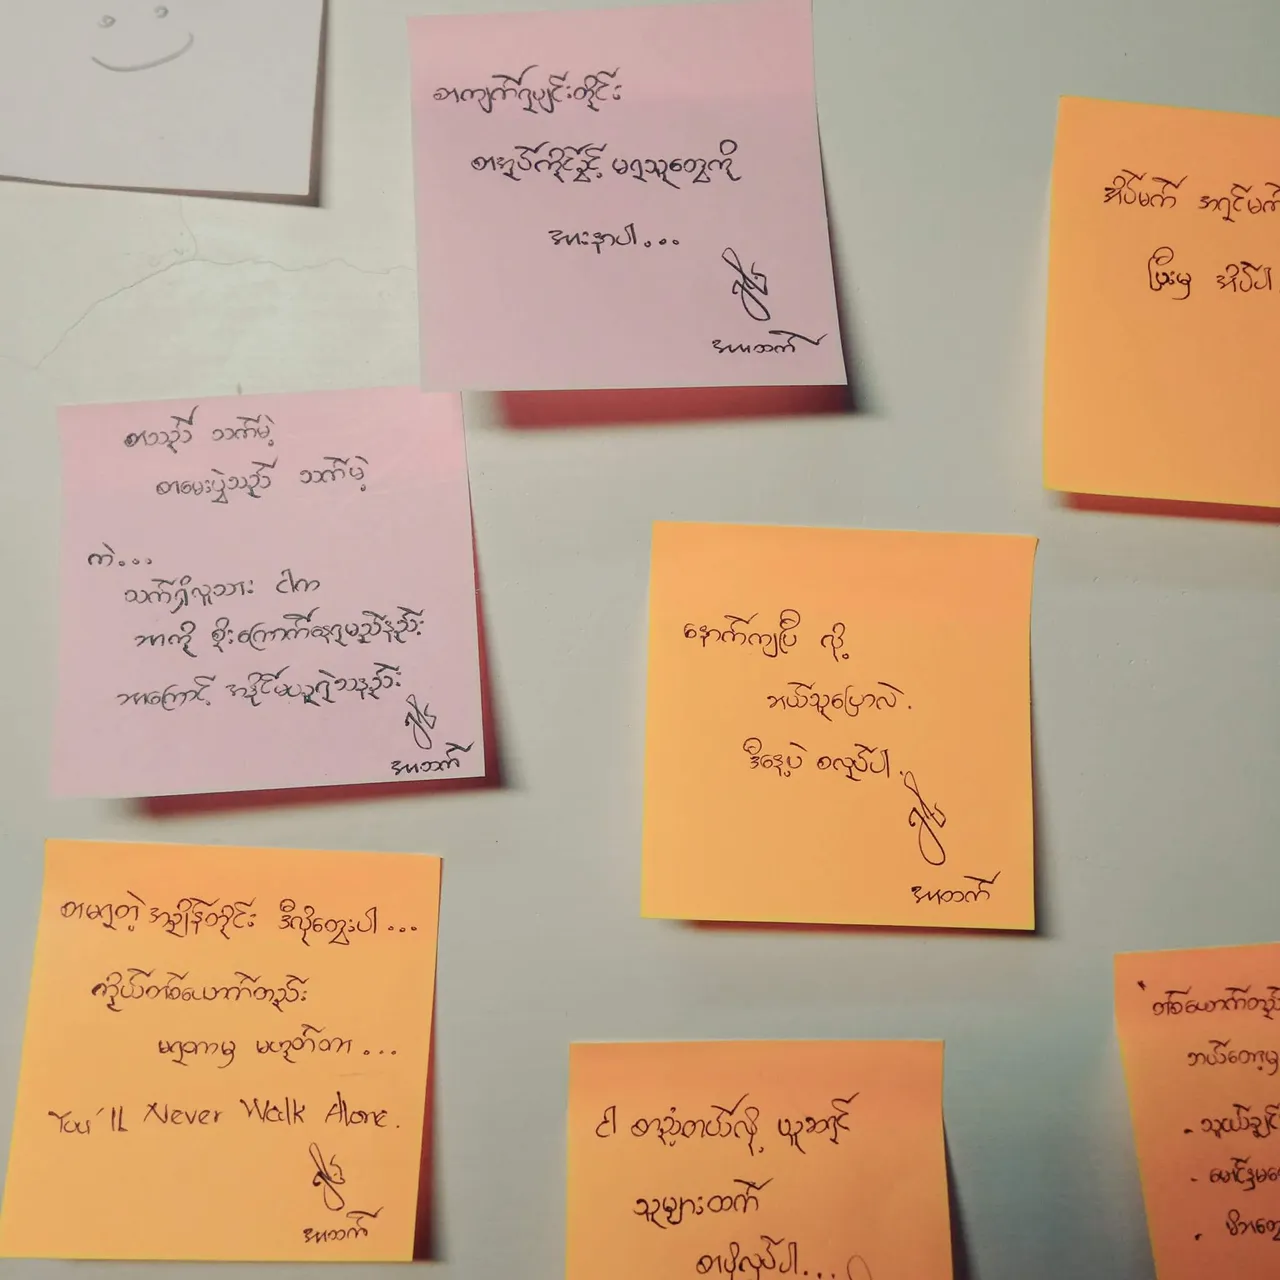 စာကျက်ရပျင်းတိုင်း
စာအုပ်ကိုင်ခွင့် မရသူတွေကို
အားနာပါ...
အာထက်
အိပ်မက် အရင်မက်
ပြီးမှ အိပ်ပါ
စာသည် သက်မဲ့
စာမေးပွဲသည် သက်မဲ့
ကဲ...
သက်ရှိလူသား ငါက
ဘာကို စိုးကြောက်နေရမည်နည်း
ဘာကြောင့် အရှုံးပေးရဲသနည်း
အာထက်
နောက်ကျပြီ လို့
ဘယ်သူပြောလဲ.
ဒီနေ့ပဲ စလုပ်ပါ.
အာထက်
စာမရတဲ့ အချိန်တိုင်း ဒီလိုတွေးပါ...
ကိုယ်တစ်ယောက်တည်း
မရတာမှ မဟုတ်တာ...
You'll Never Walk Alone.
အာထက်
ငါ စာညံ့တယ်လို့ ယူဆရင်
သူများထက်
စာပိုလုပ်ပါ...
တစ်ယောက်တည်း
ဘယ်တော့မှ
- သူငယ်ချင်
- မောင်နှမ
- မိဘတွေ